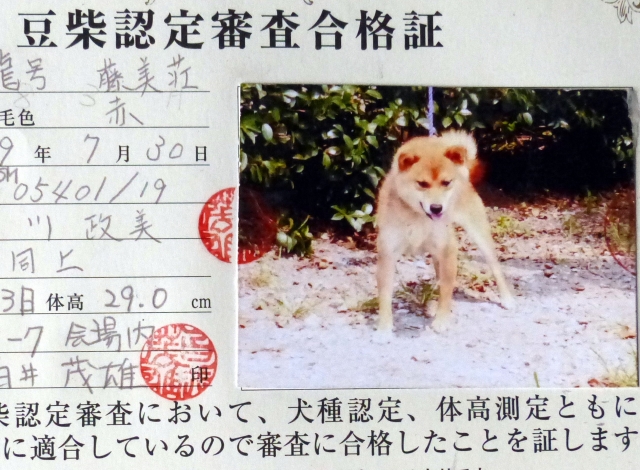 豆柴認定審査合格証
号 藤美荘
毛色 赤
9 年 7 月 30 日
05401/19
川 政美
同上
3日 体高 29.0 cm
-7 会場内
井 茂雄 印
柴認定審査において、犬種認定、体高測定ともに
に適合しているので審査に合格したことを証します